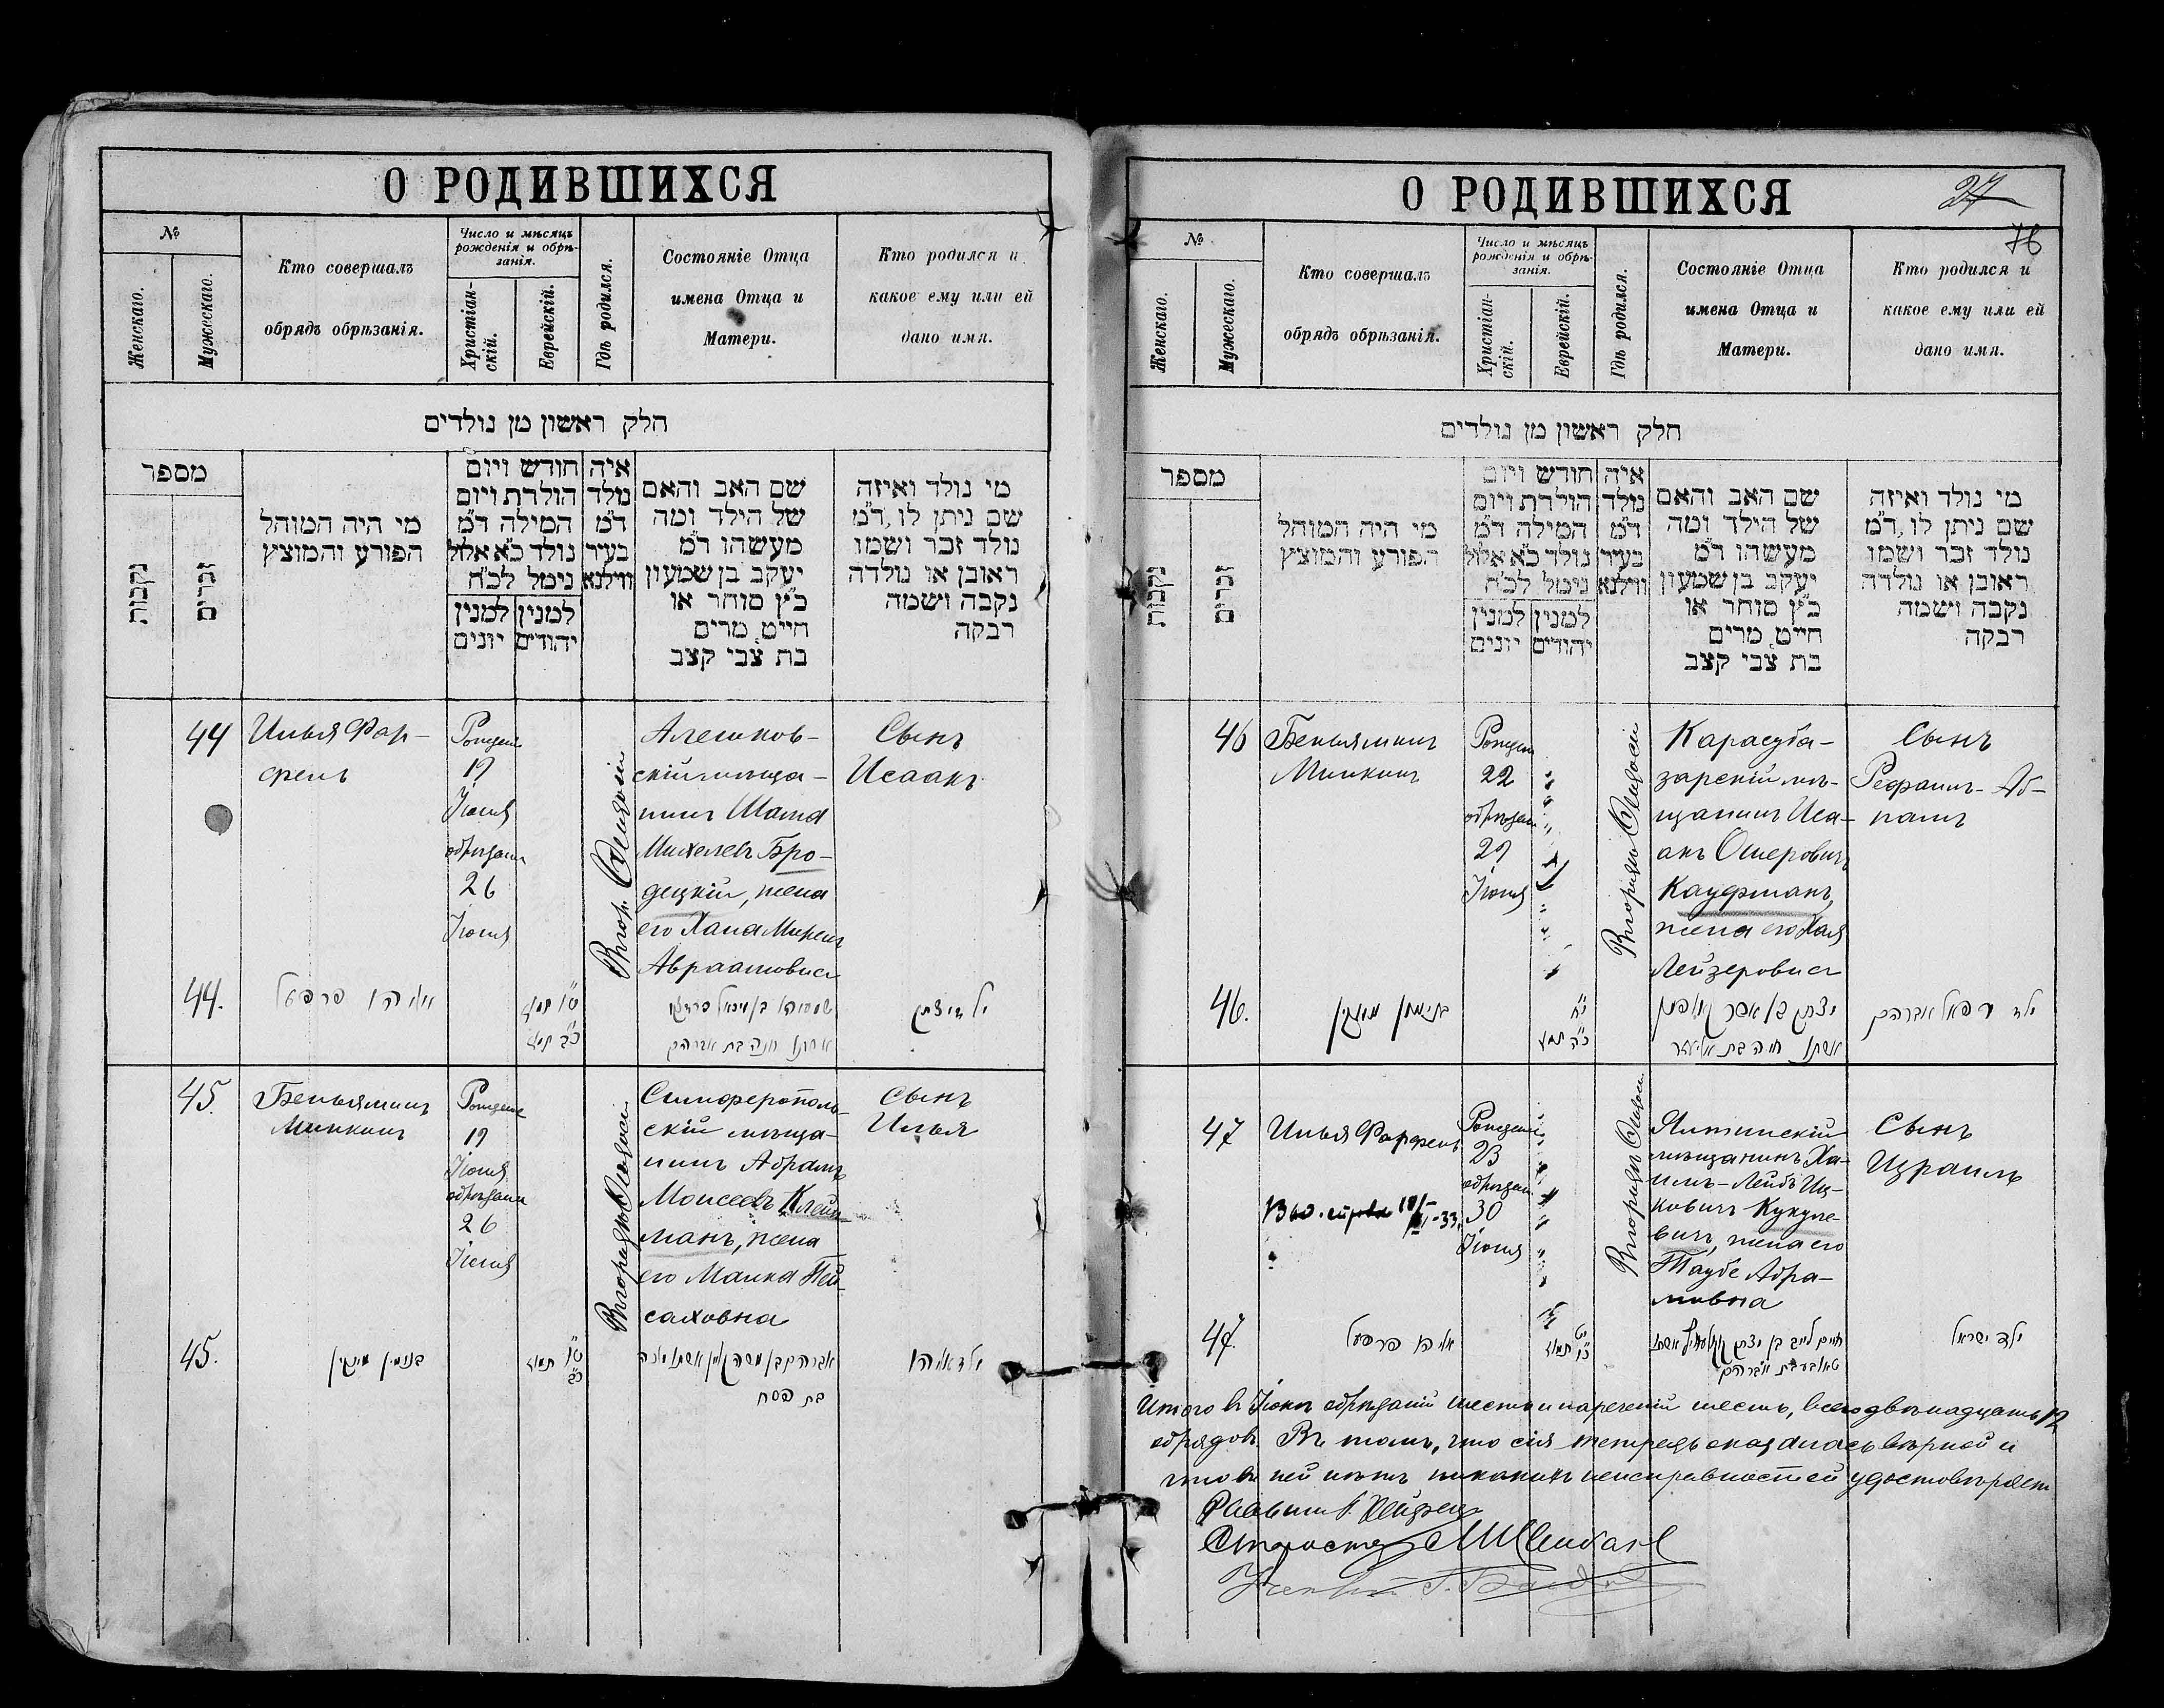 О РОДИВШИХСЯ
№
Женскаго.
Мужескаго.
Кто совершалъ
обрядъ обрѣзанія.
Число и мѣсяцъ
рожденія и обрѣ-
занія.
Христіан-
скій.
Еврейскій.
Гдѣ родился.
Состояніе Отца
имена Отца и
Матери.
Кто родился и
какое ему или ей
дано имя.
חלק ראשון מן נולדים
מספר
נקבות
זכרים
מי היה המוהל
הפורע והמוצץ
חודש ויום
הולדת ויום
המילה ד״מ
נולד כ״א אלול
נימל לכ״ח
למנין
יהודים
למנין
יונים
איה
נולד
ד״מ
בעיר
ווילנא
שם האב והאם
של הילד ומה
מעשהו ד״מ
יעקב בן שמעון
כ״ץ סוחר או
חייט, מרים
בת צבי קצב
מי נולד ואיזה
שם ניתן לו, ד״מ
נולד זכר ושמו
ראובן או נולדה
נקבה ושמה
רבקה
44
Илья Фар-
фель
19
Іюня
26
Іюня
Алешков-
скій мѣща-
нинъ
Михелевъ Бро-
децкій, жена
его Хана
Сынъ
Исаакъ
44.
אליהו פרפעל
ילד יצחק
45.
Беньяминъ
Минкинъ
19
Іюня
26
Іюня
Симферополь-
скій мѣща-
нинъ Абрамъ
Моисеевъ Клей-
манъ, жена
его Малка Пей-
саховна
Сынъ
Илья
45.
בנימין מינקין
ט״ו תמוז
כ״ב
בת פסח
ילד אליהו
О РОДИВШИХСЯ
27
76
№
Женскаго.
Мужескаго.
Кто совершалъ
обрядъ обрѣзанія.
Число и мѣсяцъ
рожденія и обрѣ-
занія.
Христіан-
скій.
Еврейскій.
Гдѣ родился.
Состояніе Отца
имена Отца и
Матери.
Кто родился и
какое ему или ей
дано имя.
חלק ראשון מן נולדים
מספר
נקבות
זכרים
מי היה המוהל
הפורע והמוצץ
חודש ויום
הולדת ויום
המילה ד״מ
נולד כ״א אלול
נימל לכ״ח
למנין
יהודים
למנין
יונים
איה
נולד
ד״מ
בעיר
ווילנא
שם האב והאם
של הילד ומה
מעשהו ד״מ
יעקב בן שמעון
כ״ץ סוחר או
חייט, מרים
בת צבי קצב
מי נולד ואיזה
שם ניתן לו, ד״מ
נולד זכר ושמו
ראובן או נולדה
נקבה ושמה
רבקה
46
Беньяминъ
Минкинъ
22
29
Іюня
Карасуба-
зарскій мѣ-
щанинъ Иса-
акъ Ошеровичъ
Кауфманъ,
жена его Хая
Лейзеровна
Сынъ
Рефаилъ-Аб-
рамъ
46.
בנימין מינקין
י״ח
כ״ה תמוז
אשתו חיה בת אליעזר
ילד רפאל אברהם
47
Илья Фарфель
23
30
Іюня
Ялтинскій
мѣщанинъ Ха-
имъ-Лейбъ Иц-
ковичъ Кукуле-
вичъ, жена его
Таубе Абра-
мовна
Сынъ
Израиль
47.
אליהו פרפעל
ילד ישראל
Итого въ Іюнѣ обрѣзаній шесть и нареченій шесть, всего двѣнадцать 12
обрядовъ. Въ томъ, что сія тетрадь оказалась вѣрной и
что въ ней нѣтъ никакихъ неисправностей удостовѣряемъ
Раввинъ
Староста